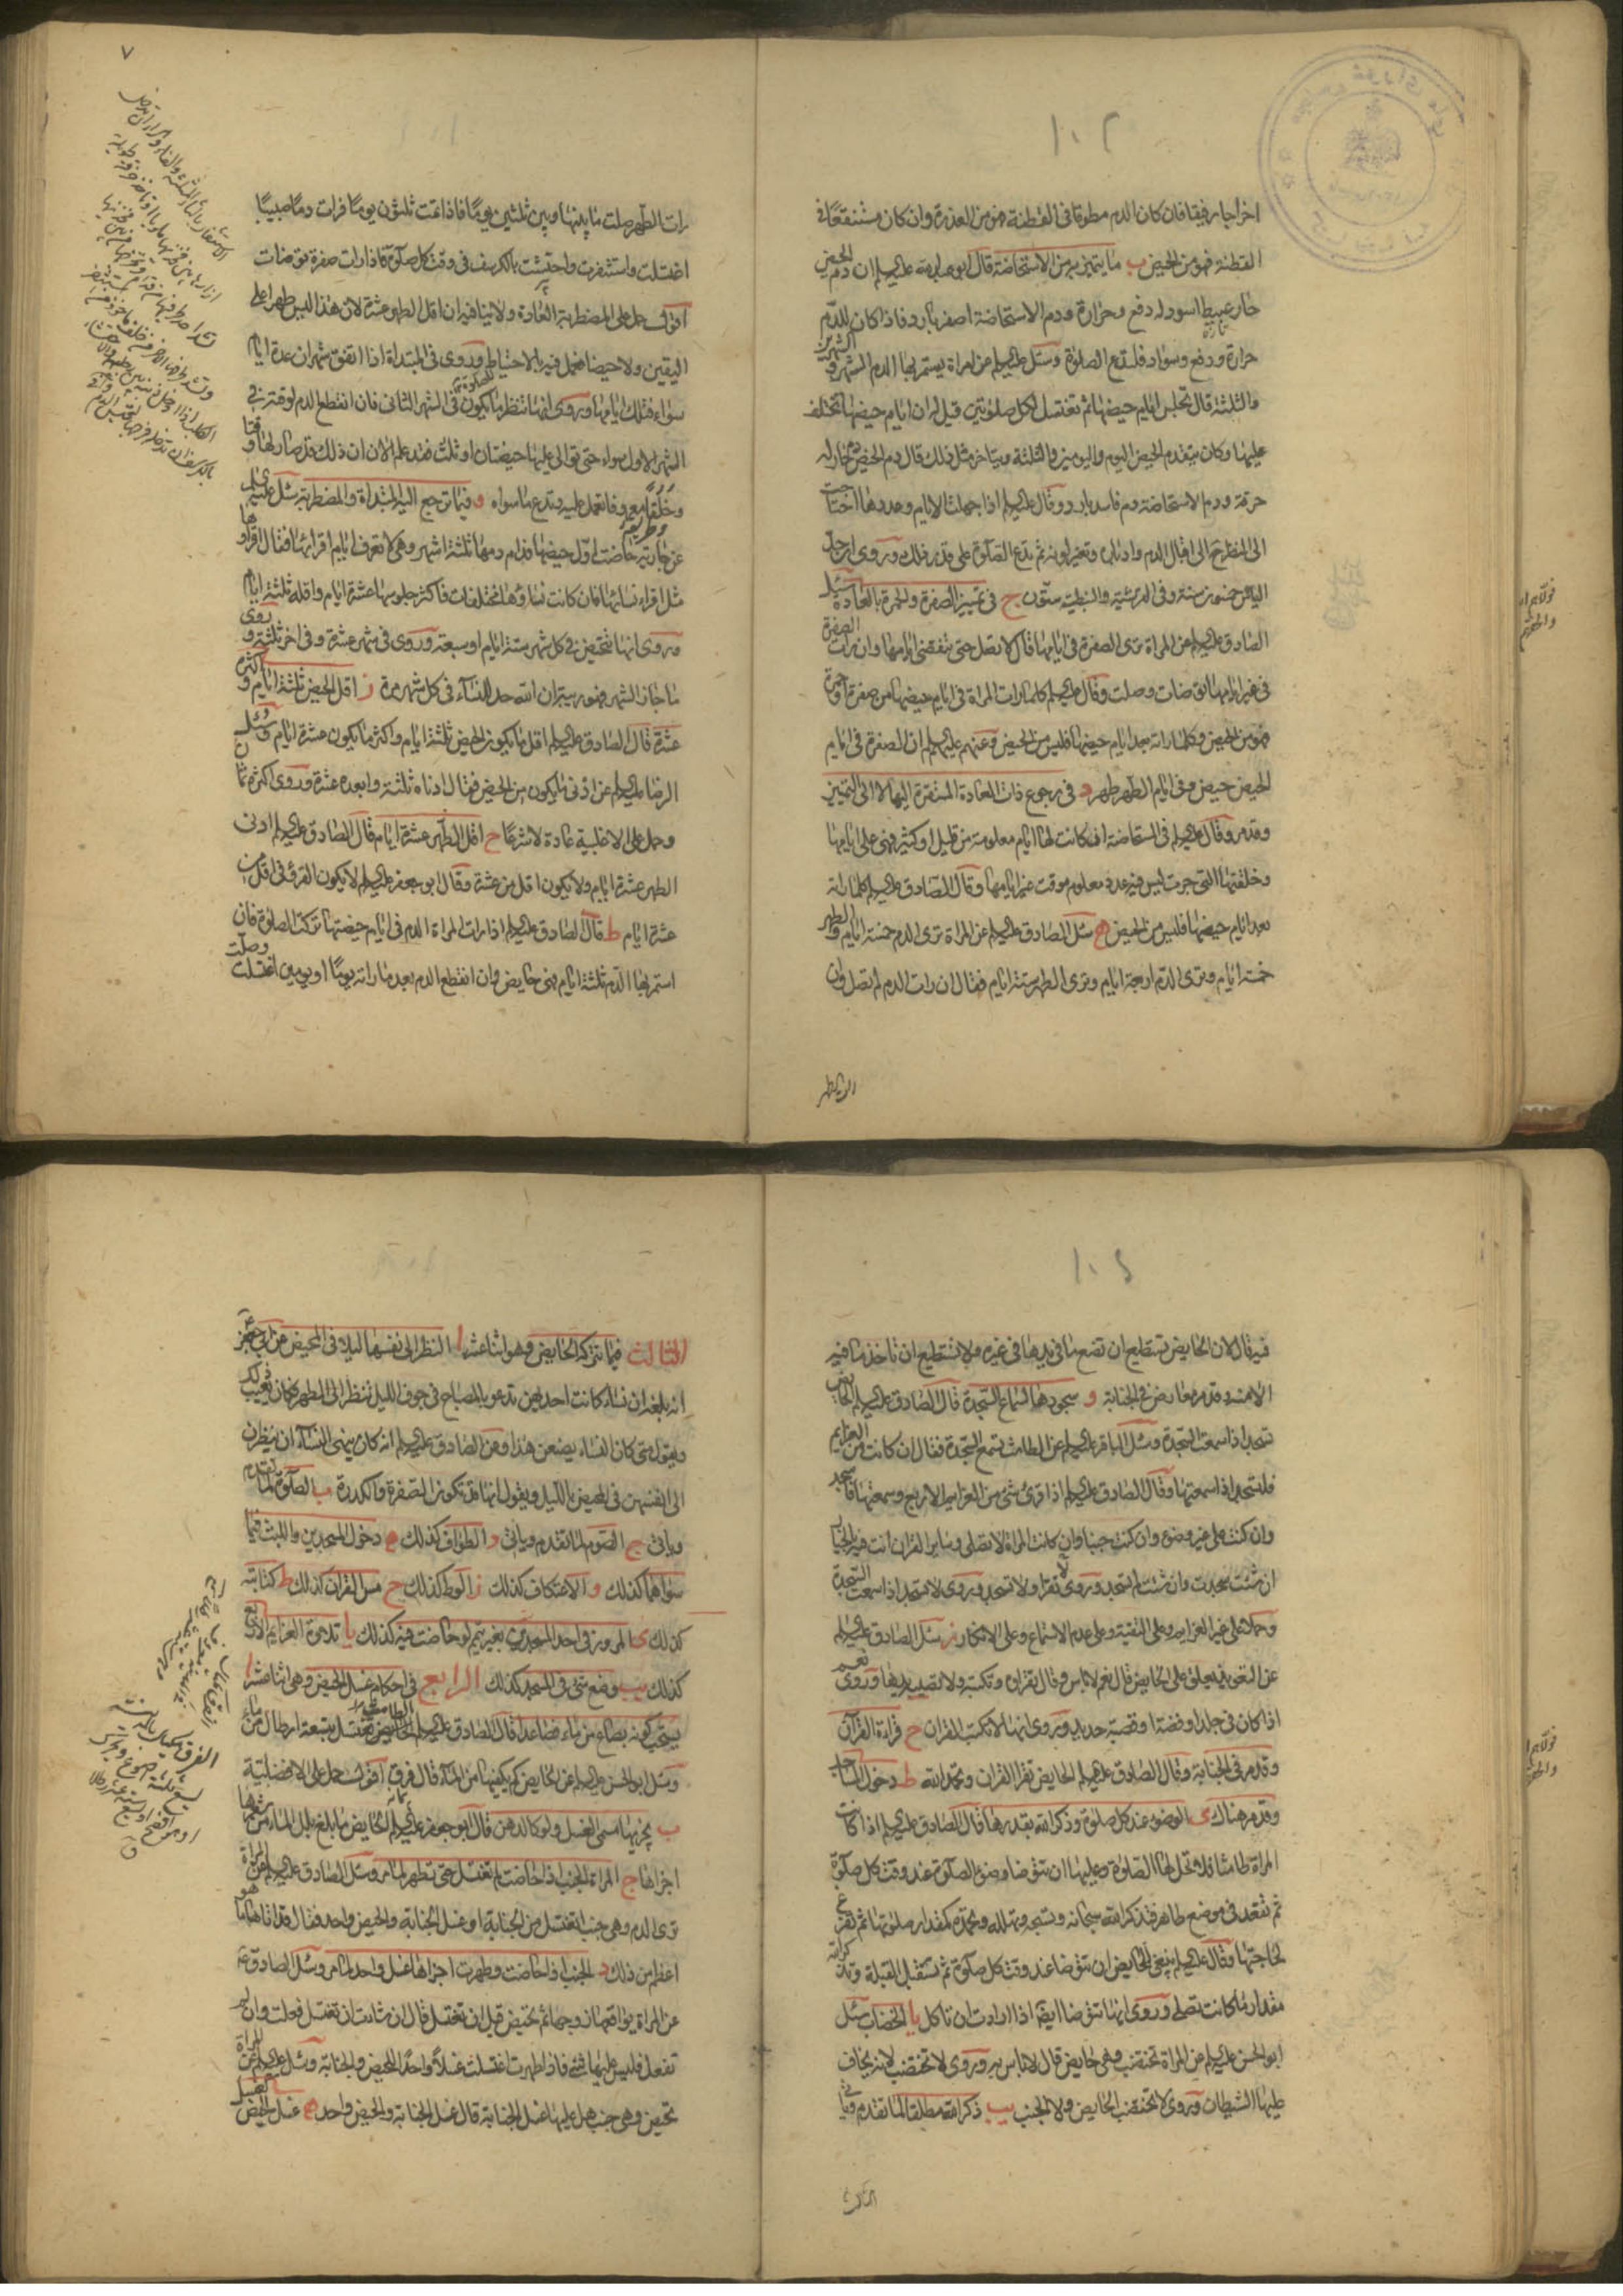 اخراجا رفيقا فان كان الدم مطوقا فى القطنة فهو من العذرة وان كان مستنقعا فى
القطنة فهو من الحيض ب ما يتميز به من الاستحاضة قال ابو عبد الله عليه السلم ان دم الحيض
حار عبيط اسود له دفع وحرارة ودم الاستحاضة اصفر بارد فاذا كان للدم
حرارة ودفع وسواد فلتدع الصلوة وسئل عليه السلم عن امراة يستمر بها الدم الشهر والشهرين
والثلثة قال تجلس ايام حيضها ثم تغتسل لكل صلوتين قيل له ان ايام حيضها تختلف
عليها وكان يتقدم الحيض اليوم واليومين والثلثة ويتاخر مثل ذلك قال دم الحيض حار له
حرقة ودم الاستحاضة دم فاسد بارد وقال عليه السلم اذا جهلت الايام وعددها احتاجت
الى النظر ح الى اقبال الدم وادباره وتغير لونه ثم تدع الصلوة على قدر ذلك وروى ان حد
الياس خمسون سنة وفى القرشية والنبطية ستون ج فى تمييز الصفرة والحمرة بالعادة سئل
الصادق عليه السلم عن المراة ترى الصفرة فى ايامها قال لا تصل حتى تنقضى ايامها وان رات الصفرة
فى غير ايامها توضات وصلت وقال عليه السلم كلما رات المراة فى ايام حيضها من صفرة او حمرة
فهو من الحيض وكلما راته بعد ايام حيضها فليس من الحيض وعنهم عليهم السلم ان الصفرة فى ايام
الحيض حيض وفى ايام الطهر طهر د فى رجوع ذات العادة المستقرة اليها لا الى التمييز
وقد مر وقال عليه السلم فى المستحاضة ان كانت لها ايام معلومة من قليل او كثير فهى على ايامها
وخلقتها التى جرت ليس فيه عدد معلوم موقت غير ايامها وقال الصادق عليه السلم كلما راته
بعد ايام حيضها فليس من الحيض ه سئل الصادق عليه السلم عن المراة ترى الدم خمسة ايام والطهر
خمسة ايام وترى الدم اربعة ايام وترى الطهر ستة ايام فقال ان رات الدم لم تصل وان
رات الطهر صلت ما بينها وبين ثلثين يوما فاذا تمت ثلثون يوما فرات دما صبيبا
اغتسلت واستثفرت واحتشت بالكرسف فى وقت كل صلوة فاذا رات صفرة توضات
اقول حمل على المضطربة العادة ولا ينافيه ان اقل الطهر عشرة لان هذا ليس طهرا على
اليقين ولا حيضا فتعمل فيه بالاحتياط وروى فى المبتداة اذا اتفق شهران عدة ايام
سواء فتلك ايامها وروى انها تنتظر ما يكون فى الشهر الثانى فان انقطع الدم لوقته فى
الشهر الاول سواء حتى توالى عليها حيضتان او ثلث فقد علم الان ان ذلك قد صار لها وقتا
وخلقا معروفا تعمل عليه وتدع ما سواه و فيما ترجع اليه المبتداة والمضطربة سئل عليه السلم
عن جارية حاضت اول حيضها فدام دمها ثلثة اشهر وهى لا تعرف ايام اقرائها فقال اقراؤها
مثل اقراء نسائها فان كانت نساؤها مختلفات فاكثر جلوسها عشرة ايام واقله ثلثة ايام
وروى انها تتحيض فى كل شهر ستة ايام او سبعة وروى فى شهر عشرة وفى اخر ثلثة وروى
ما جاز الشهر فهو ريبة ان الله حد للنساء فى كل شهر مرة ز اقل الحيض ثلثة ايام واكثره
عشرة قال الصادق عليه السلم اقل ما يكون الحيض ثلثة ايام واكثر ما يكون عشرة ايام وسئل
الرضا عليه السلم عن ادنى ما يكون من الحيض فقال ادناه ثلثة وابعده عشرة وروى اكثره ثمان
وحمل على الاغلبية عادة لا شرعا ح اقل الطهر عشرة ايام قال الصادق عليه السلم ادنى
الطهر عشرة ايام ولا يكون اقل من عشرة وقال ابو جعفر عليه السلم لا يكون القرء فى اقل من
عشرة ايام ط قال الصادق عليه السلم اذا رات المراة الدم فى ايام حيضتها تركت الصلوة فان
استمر بها الدم ثلثة ايام فهى حايض وان انقطع الدم بعد ما راته يوما او يومين اغتسلت وصلت
فيه قال لان الحايض تستطيع ان تضع ما فى يدها فى غيره ولا تستطيع ان تاخذ ما فيه
الا منه وقد مر معارض فى الجنابة و سجودها لسماع السجدة قال الصادق عليه السلم الحايض
تسجد اذا سمعت السجدة وسئل الباقر عليه السلم عن الطامث تسمع السجدة فقال ان كانت من العزايم
فلتسجد اذا سمعتها وقال الصادق عليه السلم اذا قرئ شئ من العزايم الاربع وسمعتها فاسجد
وان كنت على غير وضوء وان كنت جنبا وان كانت المراة لا تصلى وساير القران انت فيه بالخيار
ان شئت سجدت وان شئت لم تسجد وروى لا تقرا ولا تسجد وروى لا تسجد اذا سمعت السجدة
وحملا على غير العزايم وعلى التقية وعلى عدم الاستماع وعلى الانكار ز سئل الصادق عليه السلم
عن التعويذ يعلق على الحايض قال نعم لا باس وقال تقراه وتكتبه ولا تصيبه يدها وروى نعم
اذا كان فى جلد او فضة او قصبة حديد وروى انها لا تكتب القران ح قراءة القران
وقد مر فى الجنابة وقال الصادق عليه السلم الحايض تقرا القران وتحمد الله ط دخول المساجد
وقد مر هناك ى الوضوء عند كل صلوة وذكر الله بقدرها قال الصادق عليه السلم اذا كانت
المراة طامثا فلا تحل لها الصلوة وعليها ان تتوضا وضوء الصلوة عند وقت كل صلوة
ثم تقعد فى موضع طاهر فتذكر الله سبحانه وتسبحه وتهلله وتحمده كمقدار صلوتها ثم تفرغ
لحاجتها وقال عليه السلم ينبغى للحايض ان تتوضا عند وقت كل صلوة ثم تستقبل القبلة وتذكر الله
مقدار ما كانت تصلى وروى انها تتوضا ايضا اذا ارادت ان تاكل يا الخضاب سئل
ابو الحسن عليه السلم عن المراة تختضب وهى حايض قال لا باس به وروى لا تختضب لانه يخاف
عليها الشيطان وروى لا تختضب الحايض ولا الجنب يب ذكر الله مطلقا لما تقدم وياتى
الثالث فيما تتركه الحايض وهو اثنا عشر ا النظر الى نفسها ليلا فى المحيض عن ابى جعفر
انه بلغه ان نساء كانت احديهن تدعو بالمصباح فى جوف الليل تنظر الى الطهر فكان يعيب ذلك
ويقول متى كان النساء يصنعن هذا وعن الصادق عليه السلم انه كان ينهى النساء ان ينظرن
الى انفسهن فى المحيض بالليل ويقول انها قد تكون الصفرة والكدرة ب الصلوة لما تقدم
وياتى ج الصوم لما تقدم وياتى د الطواف كذلك ه دخول المسجدين واللبث فيما
سواهما كذلك و الاعتكاف كذلك ز الوطى كذلك ح مس القران كذلك ط كتابته
كذلك ى المرور فى احد المسجدين بغير تيمم لو حاضت فيه كذلك يا تلاوة العزايم الاربع
كذلك يب وضع شئ فى المسجد كذلك الرابع فى احكام غسل الحيض وهى اثنا عشر ا
يستحب كونه بصاع من ماء فصاعدا قال الصادق عليه السلم الطامث تغتسل بتسعة ارطال من ماء
وسئل ابو الحسن عليه السلم عن الحايض كم يكفيها من الماء قال فرق اقول حمل على الافضلية
ب يجزيها مسمى الغسل ولو كالدهن قال ابو جعفر عليه السلم الحايض ما بلغ بلل الماء من شعرها
اجزاها ج المراة الجنب اذا حاضت لم تغتسل حتى تطهر لما مر وسئل الصادق عليه السلم عن المراة
ترى الدم وهى جنب اتغتسل من الجنابة او غسل الجنابة والحيض واحد فقال قد اتاها ما هو
اعظم من ذلك د الجنب اذا حاضت وطهرت اجزاها غسل واحد لما مر وسئل الصادق ع
عن المراة يواقعها زوجها ثم تحيض قبل ان تغتسل قال ان شاءت ان تغتسل فعلت وان لم
تفعل فليس عليها شئ فاذا طهرت اغتسلت غسلا واحدا للحيض والجنابة وسئل عليه السلم عن المراة
تحيض وهى جنب هل عليها غسل الجنابة قال غسل الجنابة والحيض واحد ه غسل الحيض